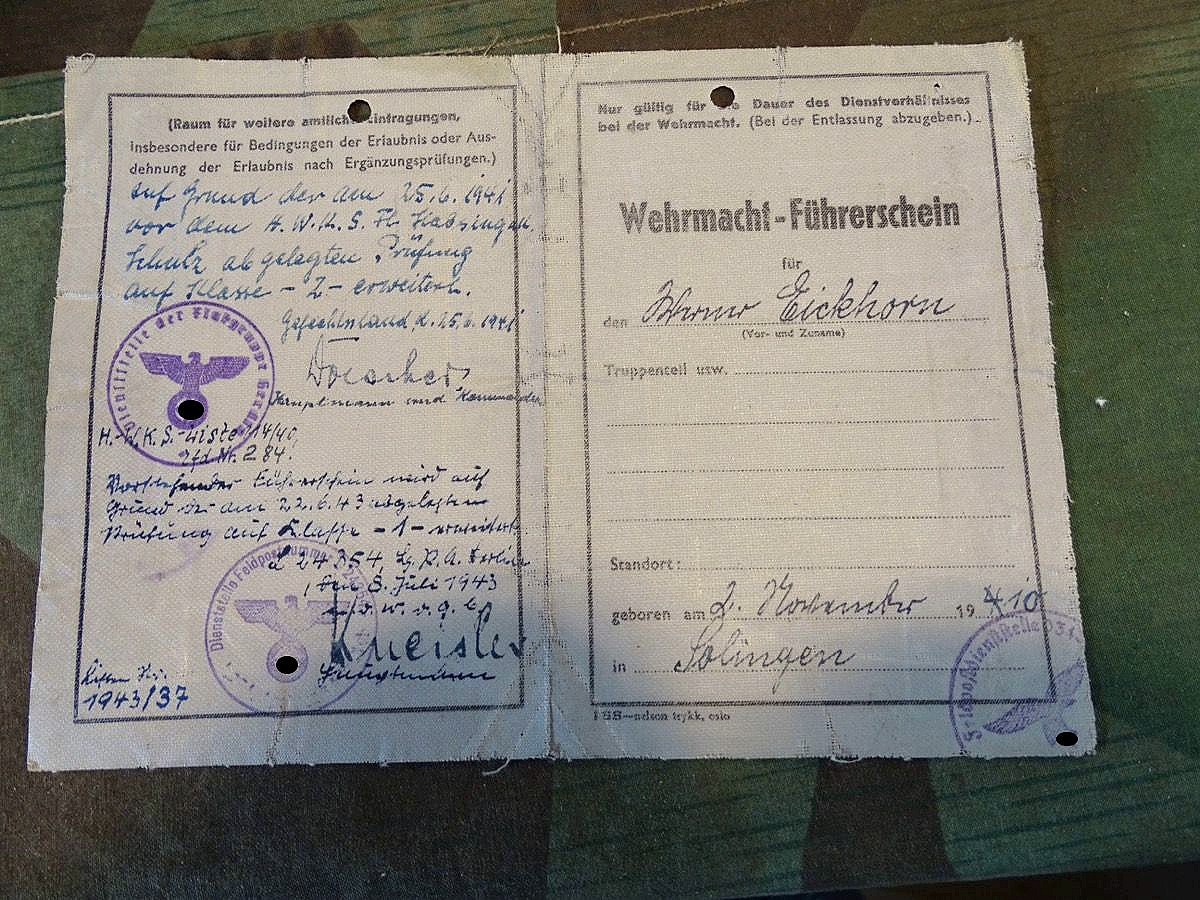 (Raum für weitere amtliche Eintragungen,
insbesondere für Bedingungen der Erlaubnis oder Aus-
dehnung der Erlaubnis nach Ergänzungsprüfungen.)
Auf Grund der am 25.6.1941
vor dem H.W.K.S. Fl.
Schulz abgelegten Prüfung
auf Klasse - 2 - erweitert.
Gefechtsstand d. 25.6.1941
Hauptmann und Kommandeur
Dienststelle der Flakgruppe
H.-W.K.S.-Liste 14/40,
lfd Nr. 284.
Vorstehender Führerschein wird auf
Grund der am 22.6.43 abgelegten
Prüfung auf Klasse - 1 - erweitert.
L 24354, Lg.P.A. Berlin
, den 8. Juli 1943
Dienststelle Feldpostnummer
Kneisler
Hauptmann
Listen Nr.
1943/37
Nur gültig für die Dauer des Dienstverhältnisses
bei der Wehrmacht. (Bei der Entlassung abzugeben.)
Wehrmacht-Führerschein
für
den Werner Eickhorn
(Vor- und Zuname)
Truppenteil usw.
Standort:
geboren am 2. November 1910
in Solingen
nelson trykk, oslo